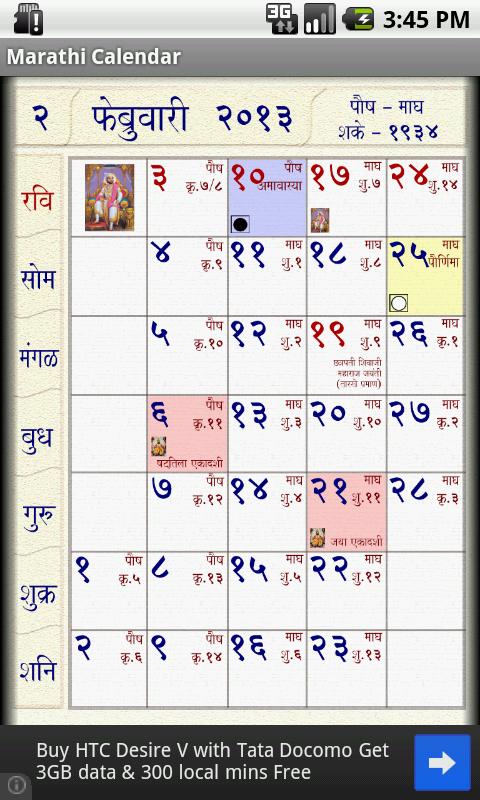 3G
3:45 PM
Marathi Calendar
२ फेब्रुवारी २०१३
पौष - माघ
शके - १९३४
रवि
३ पौष कृ.७/८
१० पौष अमावास्या
१७ माघ शु.७
२४ माघ शु.१४
सोम
४ पौष कृ.९
११ माघ शु.१
१८ माघ शु.८
२५ माघ पौर्णिमा
मंगळ
५ पौष कृ.१०
१२ माघ शु.२
१९ माघ शु.९
छत्रपती शिवाजी
महाराज जयंती
(तारखे प्रमाणे)
२६ माघ कृ.१
बुध
६ पौष कृ.११
षट्तिला एकादशी
१३ माघ शु.३
२० माघ शु.१०
२७ माघ कृ.२
गुरु
७ पौष कृ.१२
१४ माघ शु.४
२१ माघ शु.११
जया एकादशी
२८ माघ कृ.३
शुक्र
१ पौष कृ.५
८ पौष कृ.१३
१५ माघ शु.५
२२ माघ शु.१२
शनि
२ पौष कृ.६
९ पौष कृ.१४
१६ माघ शु.६
२३ माघ शु.१३
Buy HTC Desire V with Tata Docomo Get
3GB data & 300 local mins Free